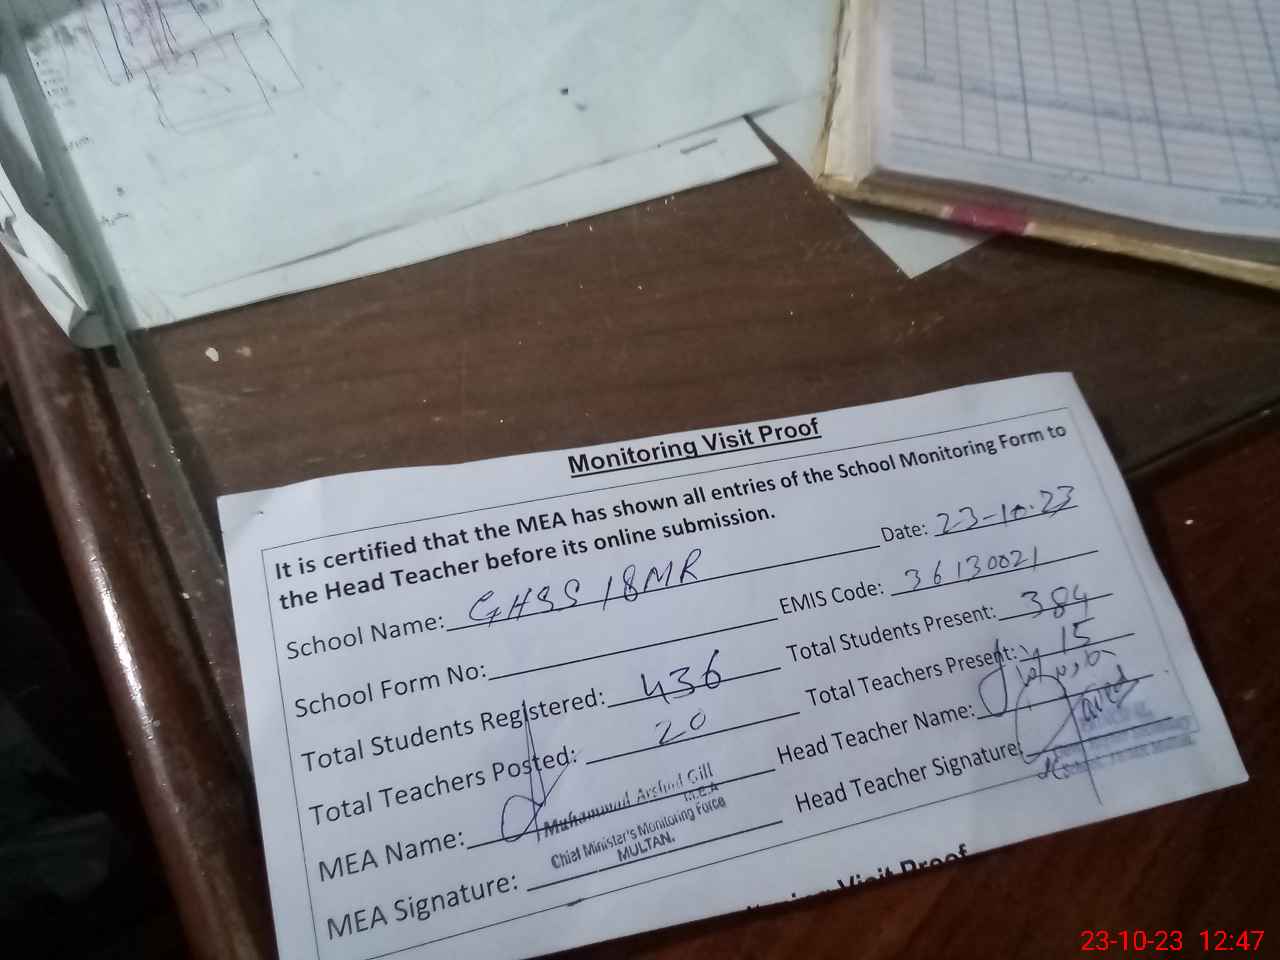 Monitoring Visit Proof
It is certified that the MEA has shown all entries of the School Monitoring Form to
the Head Teacher before its online submission.
School Name: GHSS 18MR Date: 23-10-23
School Form No: EMIS Code: 36130021
Total Students Registered: 436 Total Students Present: 384
Total Teachers Posted: 20 Total Teachers Present: 15
MEA Name: Muhammad Arshad Gill Head Teacher Name:
M.E.A
Chief Minister's Monitoring Force
MULTAN.
MEA Signature: Head Teacher Signature: Javed
Monitoring Visit Proof
23-10-23 12:47